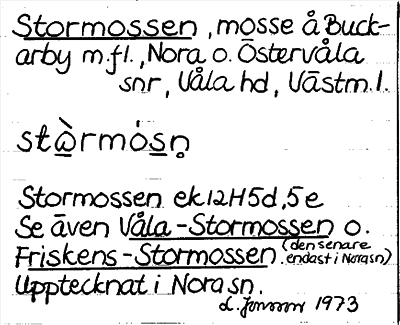 Stormossen, mosse å Buck-
arby m.fl., Nora o. Östervåla
snr, Våla hd, Västm.l.
stⱥ̀rmósn̥
Stormossen ek 12H5d,5e
Se även Våla-Stormossen o.
Friskens-Stormossen (den senare
endast i Nora sn)
Upptecknat i Nora sn.
L. Jonsson 1973